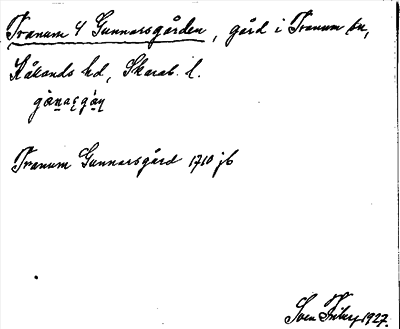 Tranum 4 Gunnarsgården, gård i Tranum sn,
Kållands hd, Skarab. l.
Tranum Gunnarsgård 1710 jb
Sven Friberg 1927.